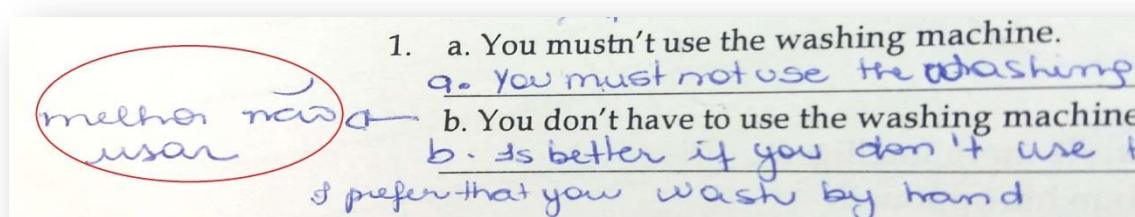 1. a. You mustn't use the washing machine.
a. You must not use the washing
melhor não
usar
b. You don't have to use the washing machine
b. Is better if you don't use t
I prefer that you wash by hand